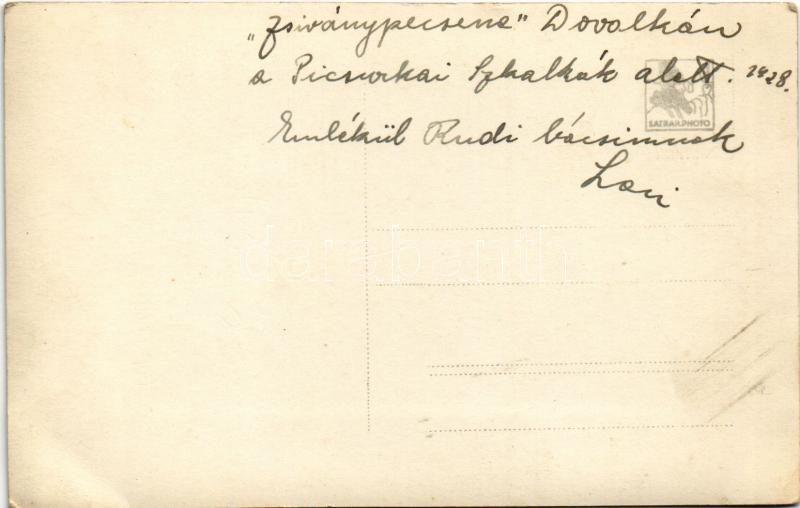 "Zsiványpecsene" Dovalkán
a Picsurkai Szkalkák alatt. 1928.
SATRAPPHOTO
Emlékül Rudi bácsimnak
Laci
darabanth